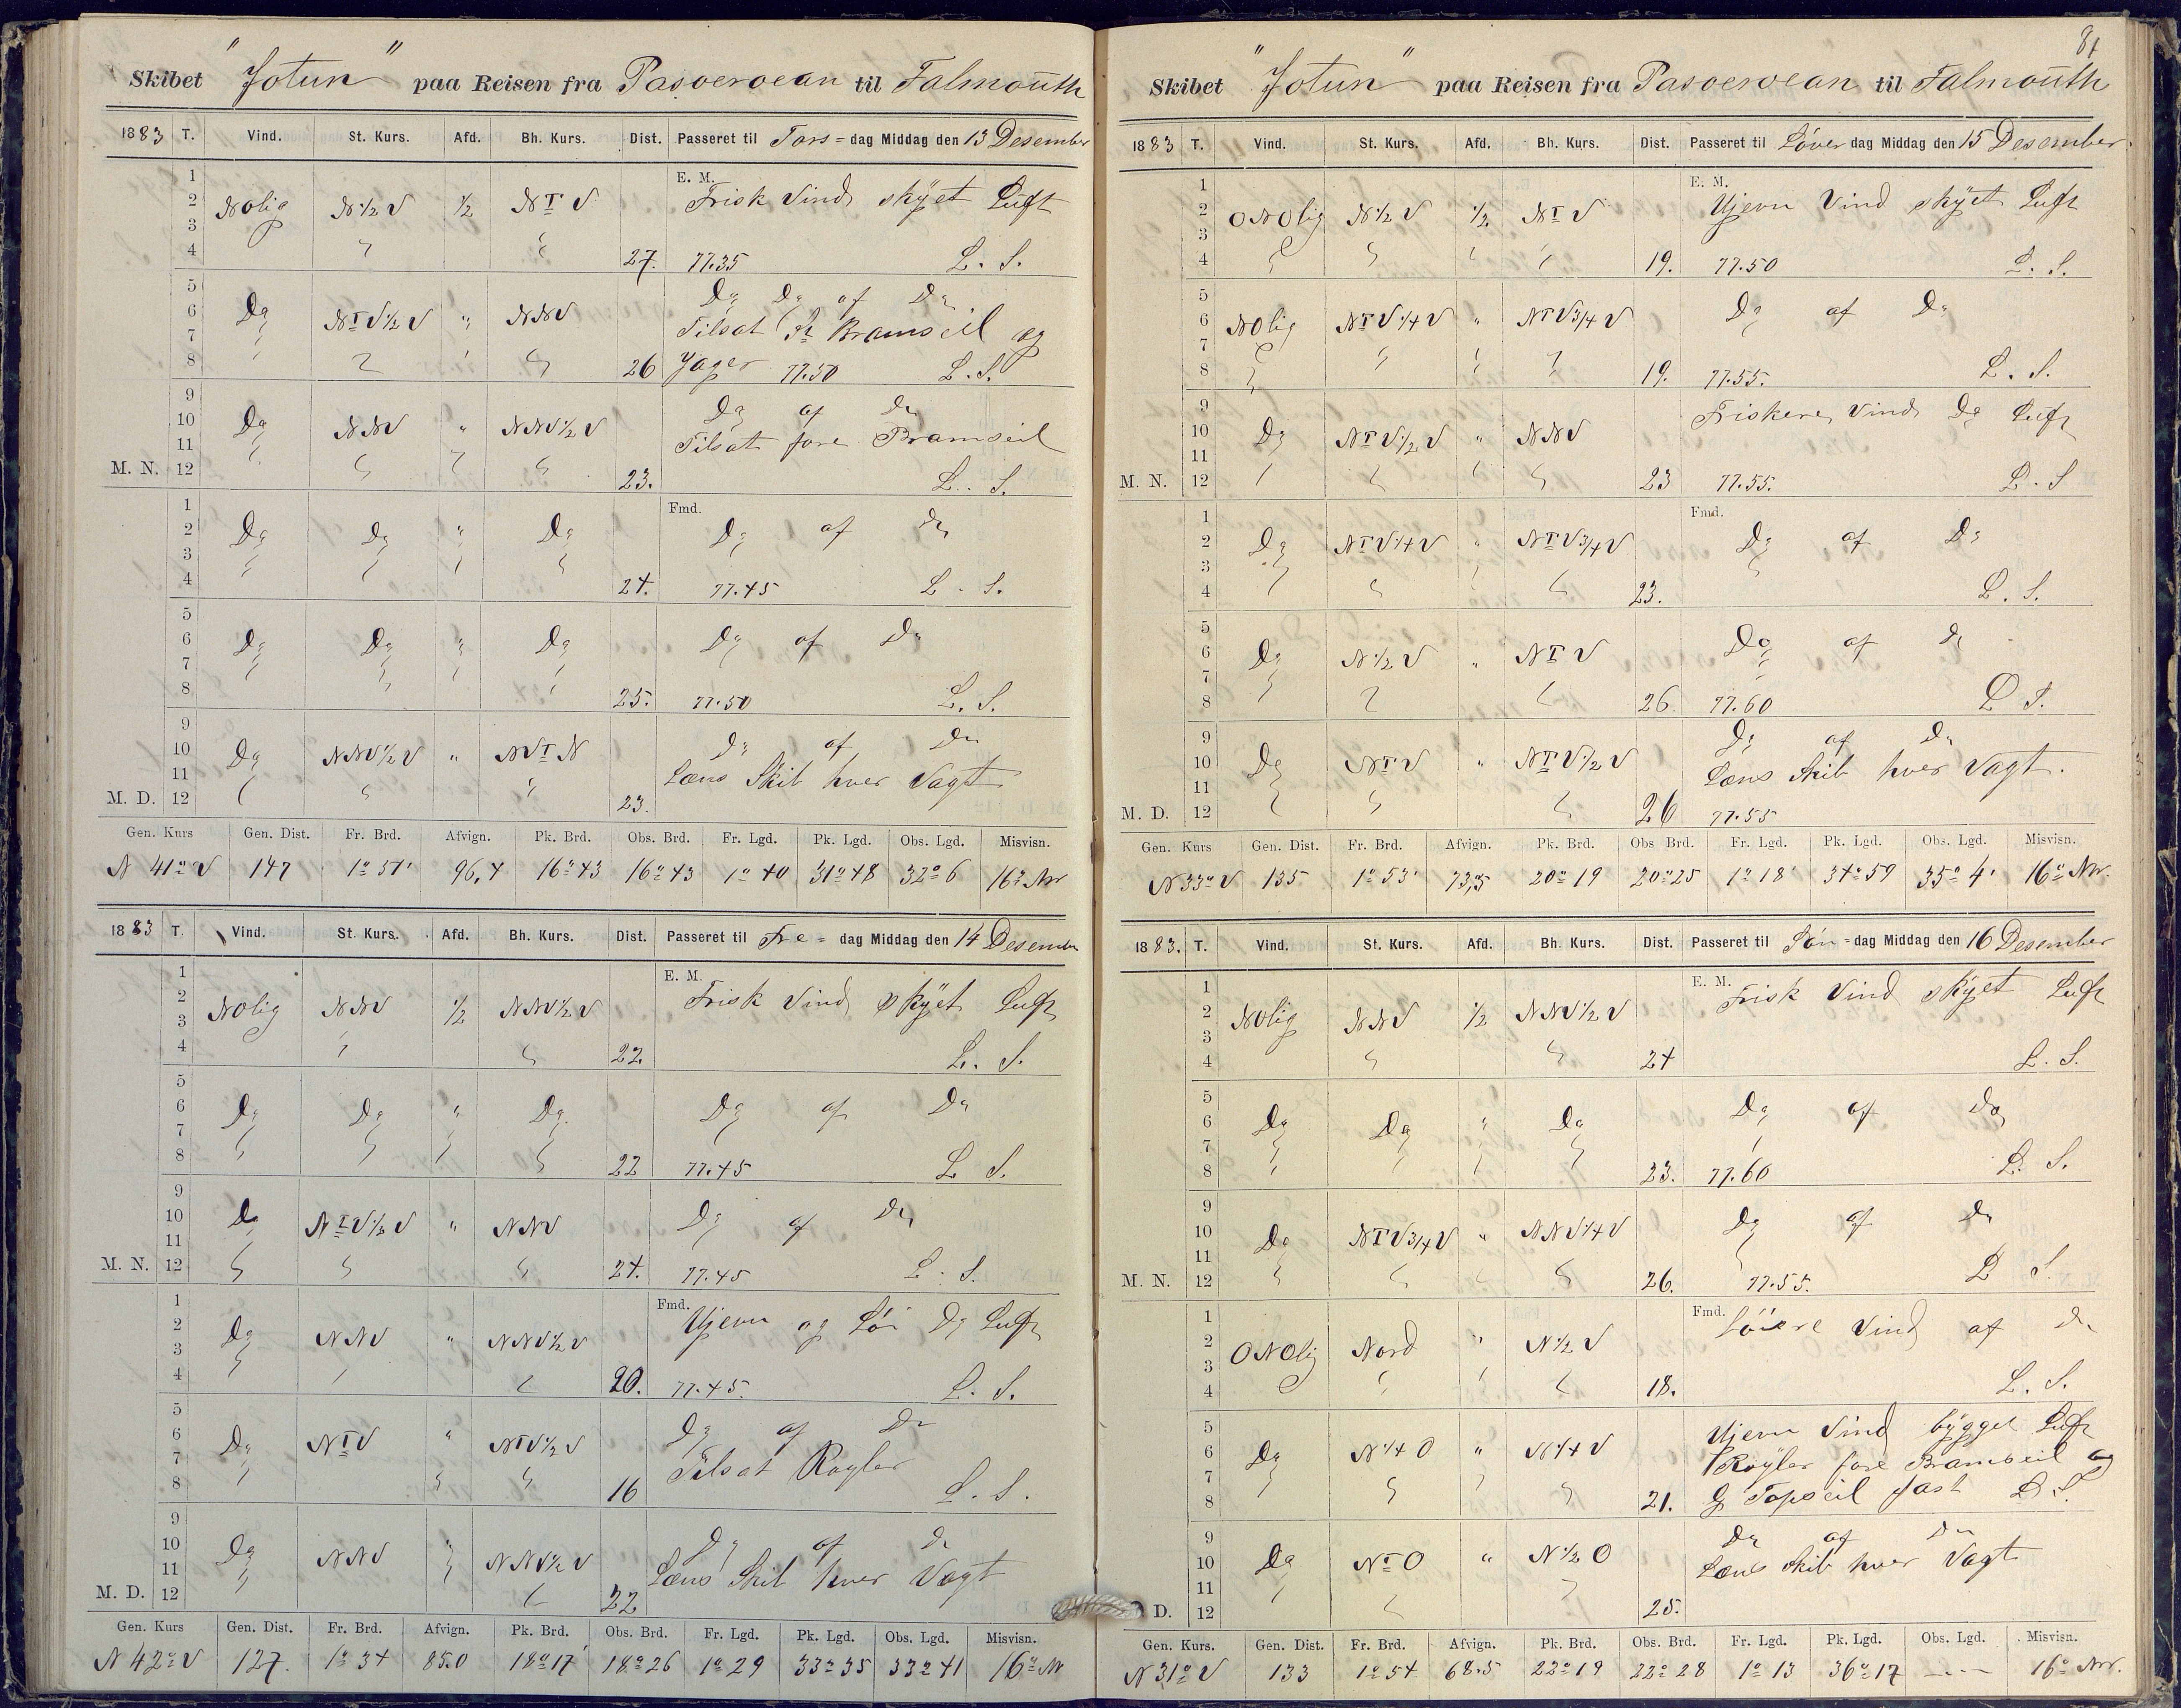 Skibet "Jotun" paa Reisen fra Pasoeroean til Falmouth
1883 T. Vind. St. Kurs. Afd. Bh. Kurs. Dist. Passeret til Tors=dag Middag den 13 Desember
1 E. M.
2 NOlig N½V ½ NTV Frisk Vind skyet Luft
3
4 27. 77.35 L. S.
5 Do Do af Do
6 Do NTV½V " NNV Tilsat St Bramseil og
7
8 26 Jager 77.50 L. S.
9 Do af Do
10 Do NNV " NNV½V Tilsat fore Bramseil
11
M. N. 12 23. L. S.
1 Fmd.
2 Do Do " Do Do af Do
3
4 24. 77.45 L. S.
5
6 Do Do " Do Do af Do
7
8 25. 77.50 L. S.
9
10 Do NNV½V " NVTN Do af Do
11 Læns Skib hver Vagt
M. D. 12 23.
Gen. Kurs Gen. Dist. Fr. Brd. Afvign. Pk. Brd. Obs. Brd. Fr. Lgd. Pk. Lgd. Obs. Lgd. Misvisn.
N 41° V 147 1° 51' 96,4 16° 43 16° 43 1° 40 31° 48 32° 6 16° NV
1883 T. Vind. St. Kurs. Afd. Bh. Kurs. Dist. Passeret til Fre= dag Middag den 14 Desember
1 E. M.
2 NOlig NNV ½ NNV½V Frisk Vind skyet Luft
3
4 22. L. S.
5
6 Do Do " Do Do af Do
7
8 22 77.45 L S.
9
10 Do NTV½V " NNV Do af Do
11
M. N. 12 24. 77.45 L. S.
1 Fmd.
2 Do NNV " NNV½V Ujevn og Löi Do Luft
3
4 20. 77.45. L. S.
5
6 Do NTV " NTV½V Do af Do
7 Tilsat Røyler
8 16 L. S.
9
10 Do NNV " NNV½V Do af Do
11 Læns Skib hver Vagt
M. D. 12 22
Gen. Kurs Gen. Dist. Fr. Brd. Afvign. Pk. Brd. Obs. Brd. Fr. Lgd. Pk. Lgd. Obs. Lgd. Misvisn.
N 42° V 127. 1° 34 85.0 18° 17' 18° 26 1° 29 33° 35 33° 41 16° NV
81
Skibet "Jotun" paa Reisen fra Pasoeroean til Falmouth
1883 T. Vind. St. Kurs. Afd. Bh. Kurs. Dist. Passeret til Löver dag Middag den 15 Desember
1 E. M.
2 ONOlig N½V ½ NTV Ujevn Vind skyet Luft
3
4 19. 77.50 L. S.
5
6 NOlig NTV¼V " NTV¾V Do af Do
7
8 19. 77.55. L. S.
9 Friskere Vind Do Luft
10 Do NTV½V " NNV
11
M. N. 12 23 77.55. L. S
1 Fmd.
2 Do NTV¼V " NTV¾V Do af Do
3
4 23. L. S.
5
6 Do N½V " NTV Do af Do
7
8 26. 77.60 L S.
9 Do af Do
10 Do NTV " NTV½V Læns Skib hver Vagt.
11
M. D. 12 26 77.55
Gen. Kurs Gen. Dist. Fr. Brd. Afvign. Pk. Brd. Obs Brd. Fr. Lgd. Pk. Lgd. Obs. Lgd. Misvisn.
N 33° V 135 1° 53' 73,5 20° 19 20° 25 1° 18' 34° 59 35° 4' 16° NV.
1883. T. Vind. St. Kurs. Afd. Bh. Kurs. Dist. Passeret til Sön=dag Middag den 16 Desember
1 E. M.
2 NOlig NNV ½ NNV½V Frisk Vind skyet Luft
3
4 24 L. S.
5
6 Do Do " Do Do af Do
7
8 23. 77.60 L. S.
9
10 Do NTV¾V " NNV¼V Do af Do
11
M. N. 12 26. 77.55. L S.
1 Fmd.
2 ONOlig Nord " N½V Löiere Vind af Do
3
4 18. L. S.
5 Ujevn Vind bygget Luft
6 Do N¼O " N¼V Røyler fore Bramseil og
7
8 21. G Topseil fast L. S.
9 Do af Do
10 Do NTO " N½O Læns Skib hver Vagt
11
D. 12 25.
Gen. Kurs. Gen. Dist. Fr. Brd. Afvign. Pk. Brd. Obs. Brd. Fr. Lgd. Pk. Lgd. Obs. Lgd. Misvisn.
N 31° V 133 1° 54 68.5 22° 19 22° 28 1° 13 36° 17 --- 16° NV.